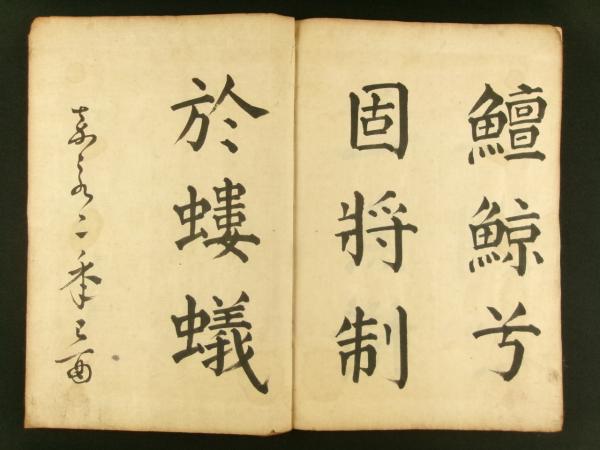 鱣鯨兮
固將制
於螻蟻
嘉永二季己酉